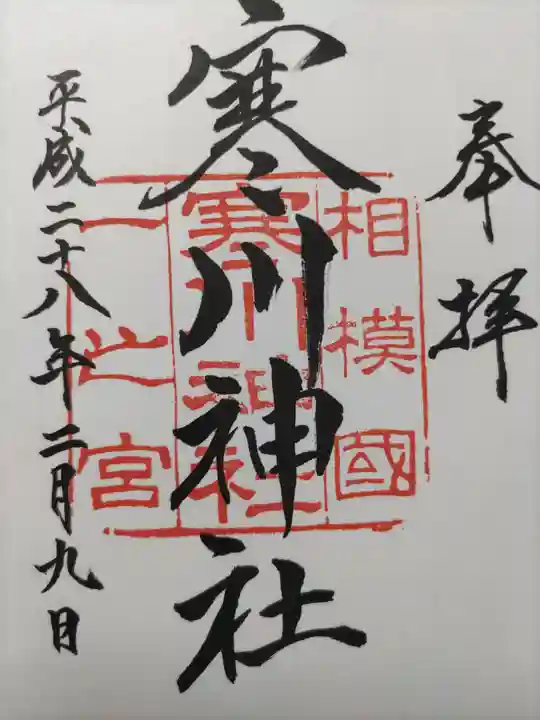 奉拝
相模國
寒川神社
寒川神社
一之宮
平成二十八年二月九日